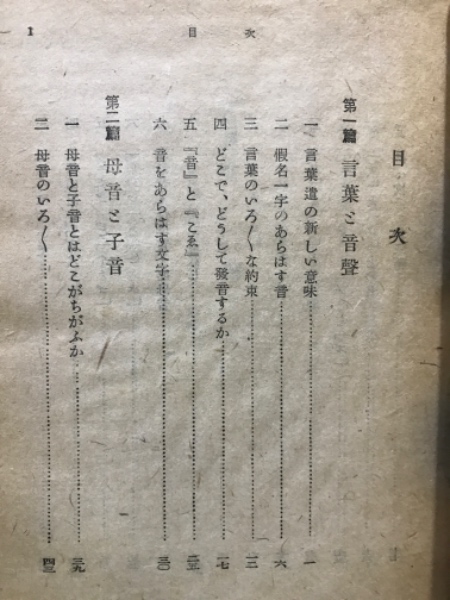 目次
1
目次
第一篇 言葉と音聲
一 言葉遣の新しい意味 一
二 假名一字のあらはす音 六
三 言葉のいろ〱な約束 一二
四 どこで、どうして發音するか 一七
五 『音』と『こゑ』 二五
六 音をあらはす文字 三〇
第二篇 母音と子音
一 母音と子音とはどこがちがふか 三九
二 母音のいろ〱 四三